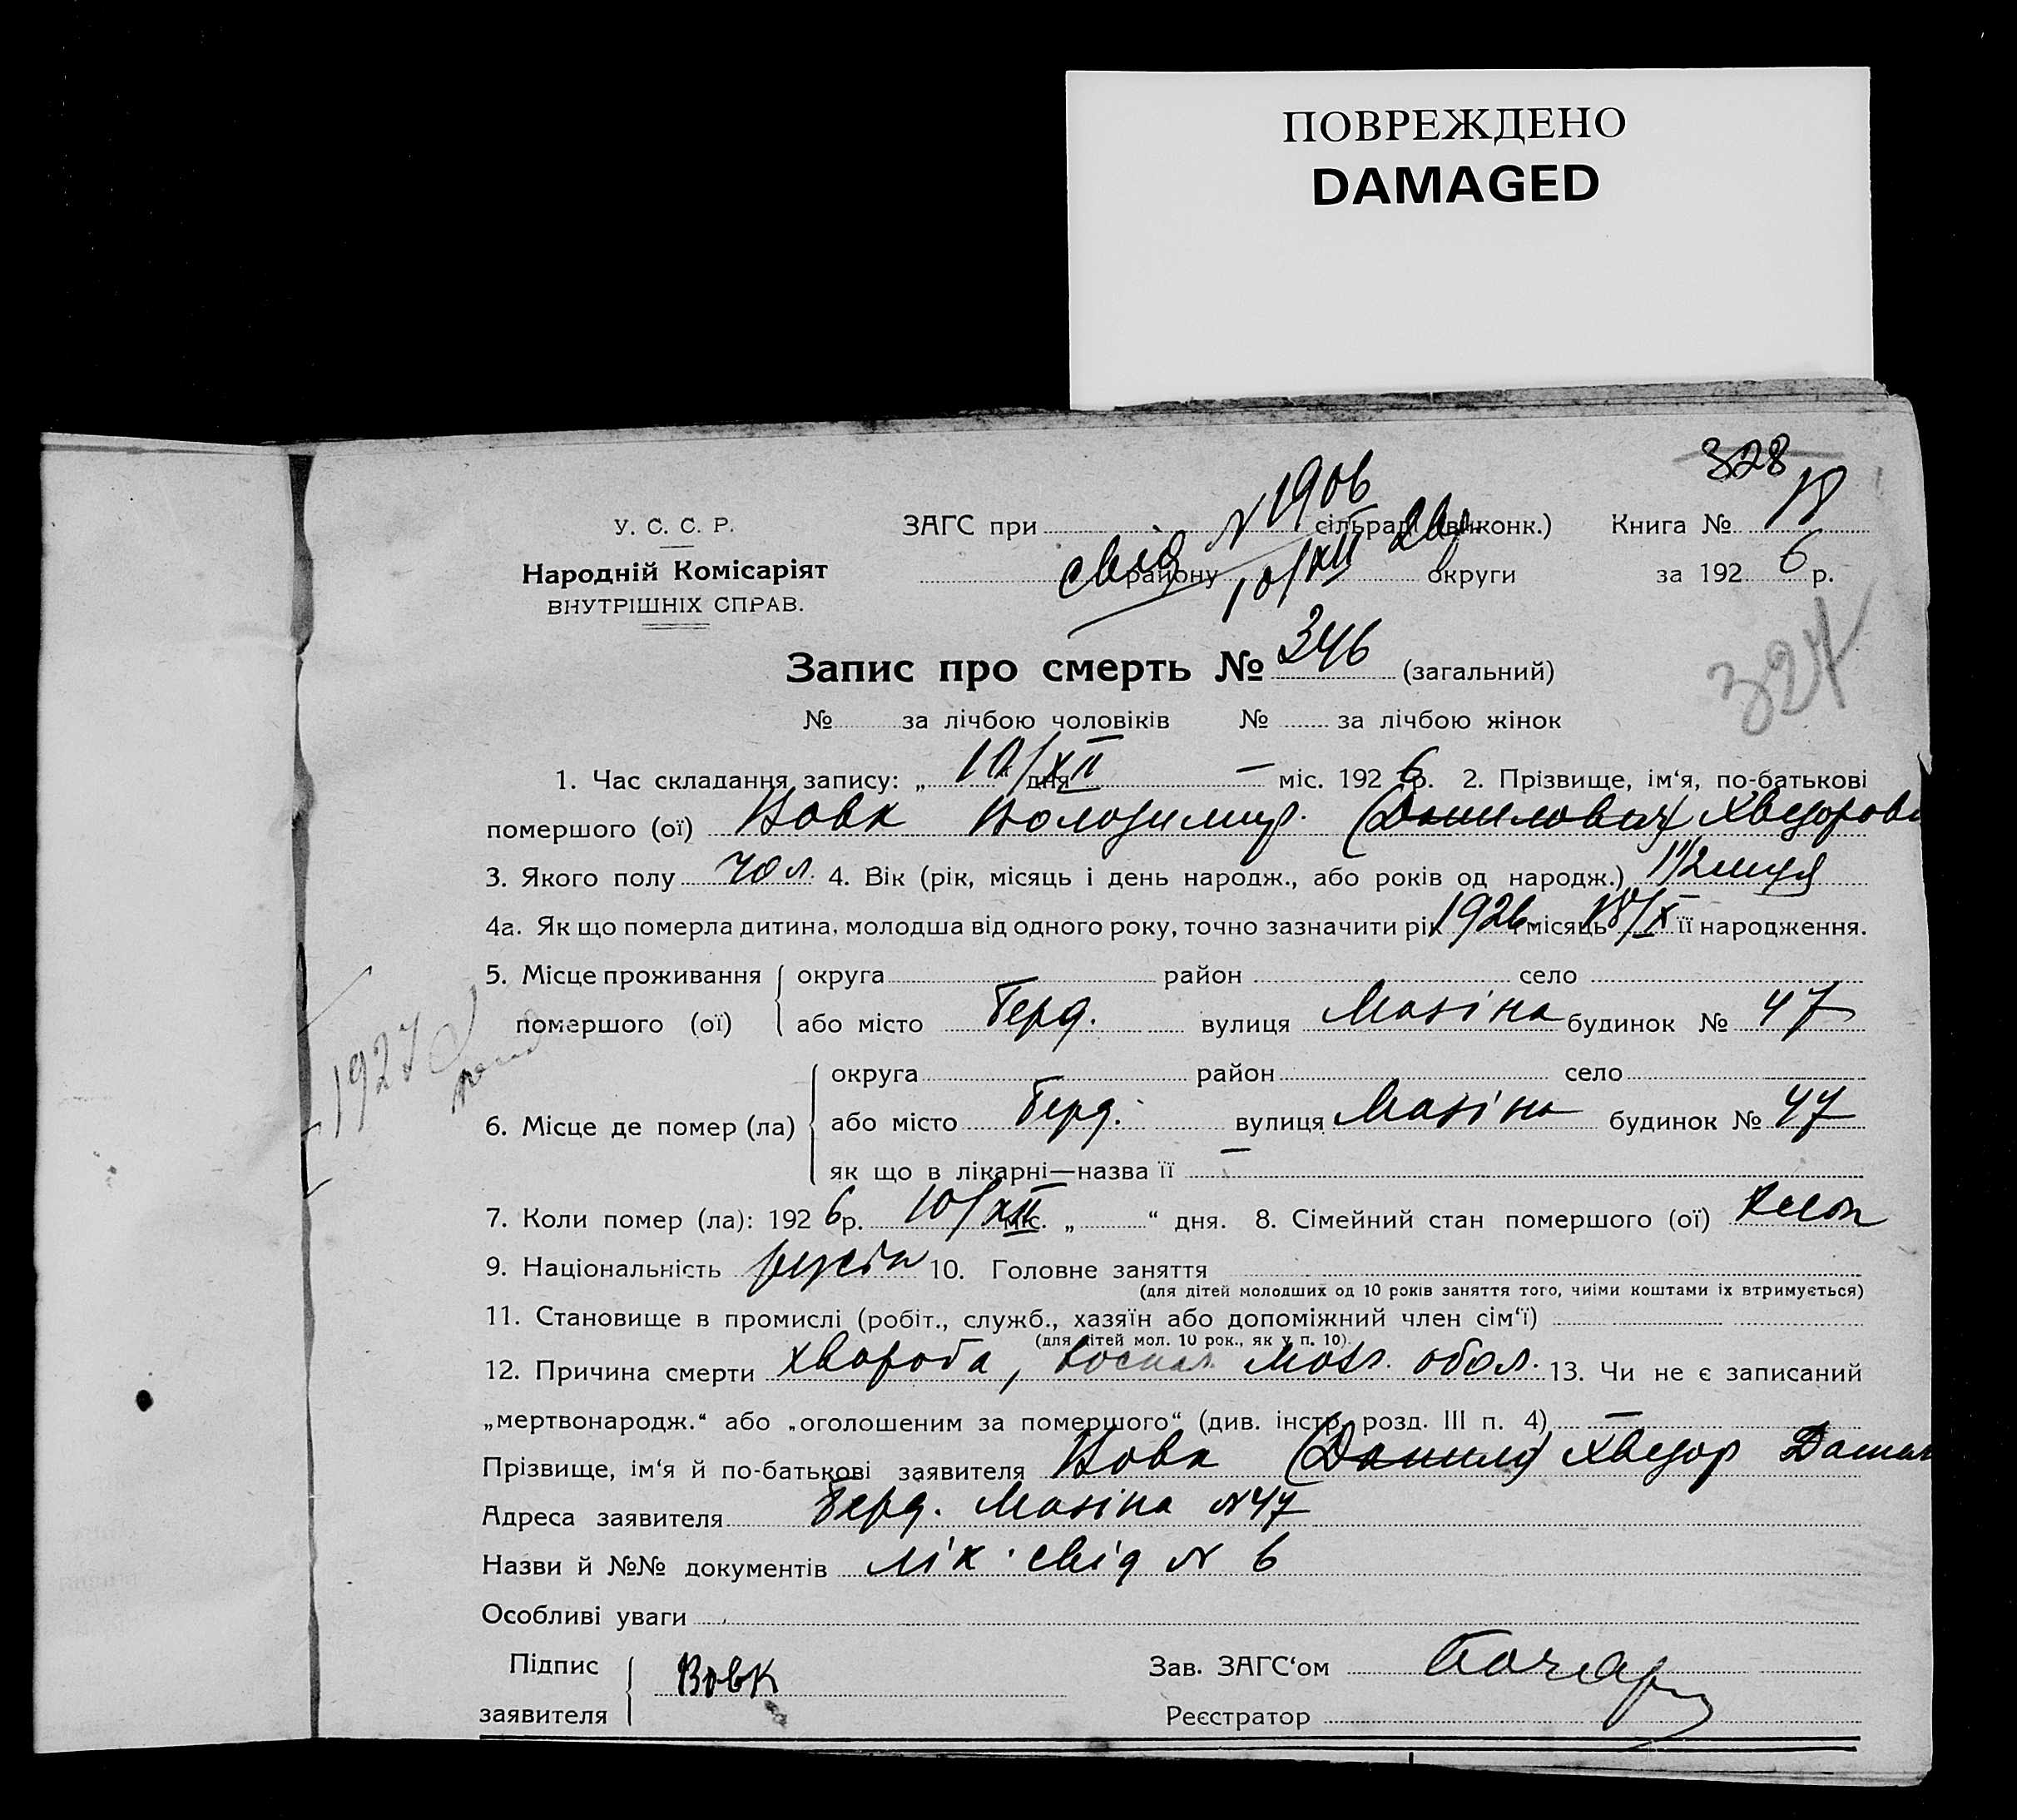 ПОВРЕЖДЕНО
DAMAGED
328
У. С. С. Р.
Народній Комісаріят
ВНУТРІШНІХ СПРАВ.
ЗАГС при № 1906 сільраді (виконк.) Книга №
свід району 10/XII округи за 1926 р.
327
Запис про смерть № 346 (загальний)
№ за лічбою чоловіків № за лічбою жінок
1. Час складання запису: „ 10/XII дня — міс. 1926 р. 2. Прізвище, ім‘я, по-батькові
помершого (ої) Вовк Володимир (Данилович) Хведорови
3. Якого полу чол. 4. Вік (рік, місяць і день народж., або років од народж.) 1 1/2 місця
4а. Як що померла дитина, молодша від одного року, точно зазначити рік 1926 місяць 18/X її народження.
5. Місце проживання помершого (ої) округа район село
або місто Берд. вулиця Мазіна будинок № 47
1927
6. Місце де помер (ла) округа район село
або місто Берд. вулиця Мазіна будинок № 47
як що в лікарні—назва її —
7. Коли помер (ла): 1926 р. 10/XII міс. „ “ дня. 8. Сімейний стан помершого (ої)
9. Національність 10. Головне заняття
(для дітей молодших од 10 років заняття того, чиїми коштами їх втримується)
11. Становище в промислі (робіт., служб., хазяїн або допоміжний член сім‘ї)
(для дітей мол. 10 рок., як у п. 10).
12. Причина смерти хвороба, воспал. мозг. обол. 13. Чи не є записаний
„мертвонародж.“ або „оголошеним за помершого“ (див. інстр. розд. III п. 4) —
Прізвище, ім‘я й по-батькові заявителя Вовк (Данило) Хведор Данил
Адреса заявителя Берд. Мазіна №47
Назви й №№ документів лік. свід № 6
Особливі уваги
Підпис заявителя Вовк Зав. ЗАГС‘ом
Реєстратор